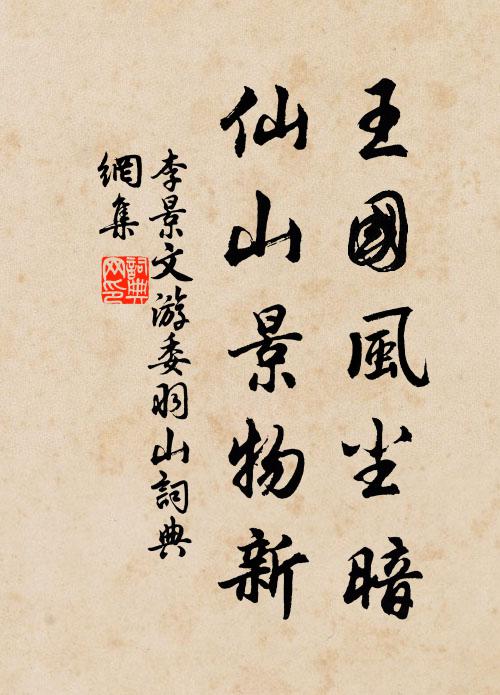 王國風尘暗
仙山景物新
李景文游委羽山詞典
網集
詞典網印